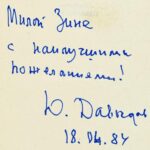 Милой Зине
с наилучшими
пожеланиями!
Ю. Давыдов
18.IX.84